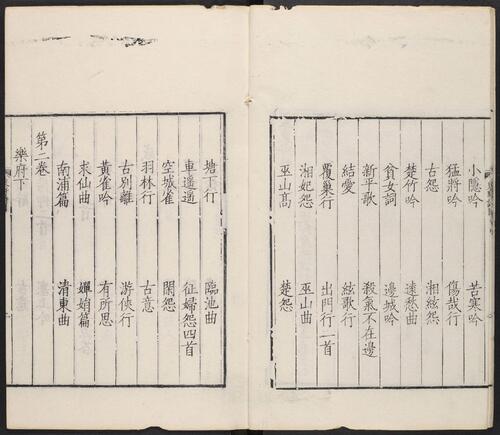 小隱吟 苦寒吟
猛將吟 傷哉行
古怨 湘絃怨
楚竹吟 遠愁曲
貧女詞 邊城吟
新平歌 殺氣不在邊
結愛 絃歌行
覆巢行 出門行一首
湘妃怨 巫山曲
巫山高 楚怨
塘下行 臨池曲
車遙遙 征婦怨四首
空城雀 閑怨
羽林行 古意
古別離 游俠行
黃雀吟 有所思
求仙曲 嬋娟篇
南浦篇 清東曲
第二卷
樂府下